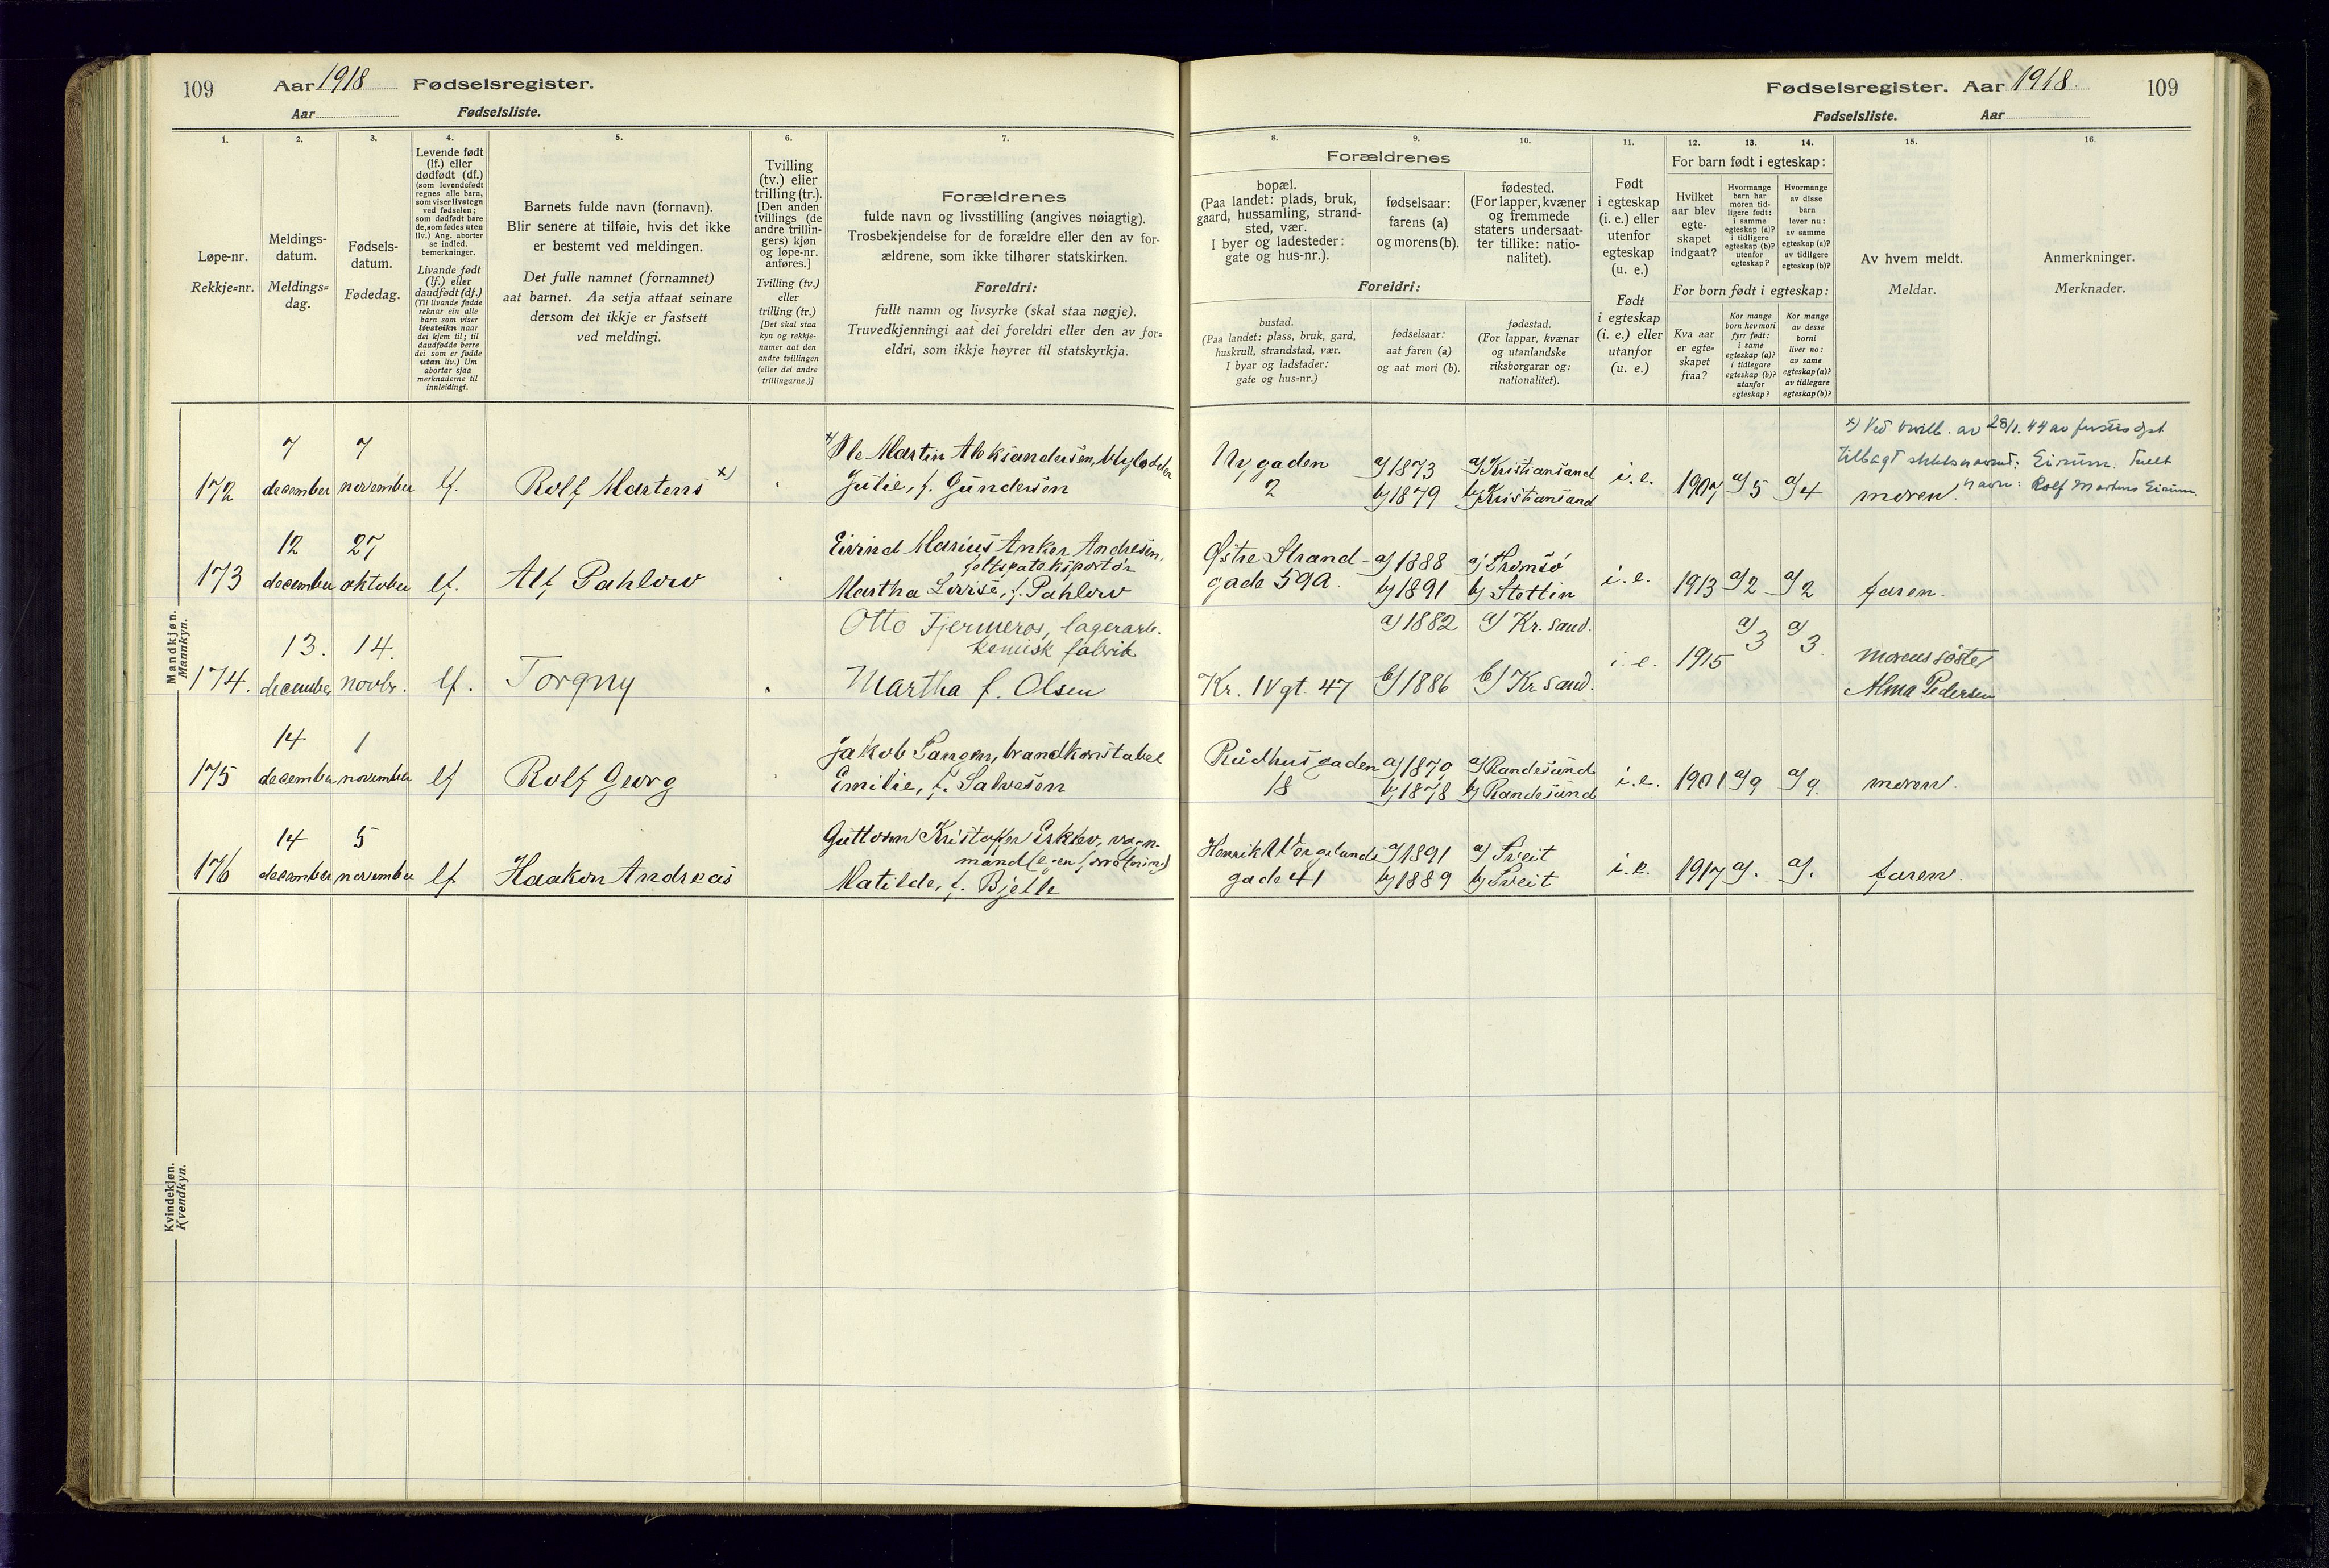 109
Aar 1918 Fødselsregister.
Aar Fødselsliste.
1.
2.
3.
4.
5.
6.
7.
Løpe-nr.
Rekkje=nr.
Meldings-
datum.
Meldings=
dag.
Fødsels-
datum.
Fødedag.
Levende født
(lf.) eller
dødfødt (df.)
(som levendefødt
regnes alle barn,
som viser livstegn
ved fødselen;
som dødfødt bare
de, som fødes uten
liv.) Ang. aborter
se indled.
bemerkninger.
Livande født
(lf.) eller
daudfødt (df.)
(Til livande fødde
reknar ein alle
born som viser
livsteikn naar
dei kjem til; til
daudfødde berre
dei som er fødde
utan liv.) Um
abortar sjaa
merknaderne til
innleidingi.
Barnets fulde navn (fornavn).
Blir senere at tilføie, hvis det ikke
er bestemt ved meldingen.
Det fulle namnet (fornamnet)
aat barnet. Aa setja attaat seinare
dersom det ikkje er fastsett
ved meldingi.
Tvilling
(tv.) eller
trilling (tr.).
[Den anden
tvillings (de
andre trillin-
gers) kjøn
og løpe-nr.
anføres.]
Tvilling (tv.)
eller
trilling (tr.)
[Det skal staa
kyn og rekkje-
numer aat den
andre tvillingen
(eller dei andre
trillingarne.)]
Forældrenes
fulde navn og livsstilling (angives nøiagtig).
Trosbekjendelse for de forældre eller den av for-
ældrene, som ikke tilhører statskirken.
Foreldri:
fullt namn og livsyrke (skal staa nøgje).
Truvedkjenningi aat dei foreldri eller den av for=
eldri, som ikkje høyrer til statskyrkja.
Mandkjøn.
Mannkyn.
7 7
x) Ole Martin Aleksandersen,
172 december november lf. Rolf Martens x) Julie, f. Gundersen
12 27
Eivind Marius Anker Andresen,
feltspateksportør
173 december oktober lf. Alf Pahlow Martha Lovise, f. Pahlow
13. 14.
Otto Fjermeros, lagerarb.
kemisk fabrik
174. december novbr. lf. Torgny Martha f. Olsen
14 1
Jakob Vangen, brandkonstabel
175 december november lf Rolf Georg Emilie, f. Salvesen
14 5
Guttorm Kristoffer
176 december november lf Haakon Andreas Matilde, f. Bjelle
Kvindekjøn.
Kvendkyn.
Fødselsregister. Aar 1918.
109
Fødselsliste. Aar
8.
9.
10.
11.
12.
13.
14.
15.
16.
Forældrenes
bopæl.
(Paa landet: plads, bruk,
gaard, hussamling, strand-
sted, vær.
I byer og ladesteder:
gate og hus-nr.).
fødselsaar:
farens (a)
og morens (b).
fødested.
(For lapper, kvæner
og fremmede
staters undersaat-
ter tillike: natio-
nalitet).
Foreldri:
bustad.
(Paa landet: plass, bruk, gard,
huskrull, strandstad, vær.
I byar og ladstader:
gate og hus=nr.)
fødselsaar:
aat faren (a)
og aat mori (b).
fødestad.
(For lappar, kvænar
og utanlandske
riksborgarar og:
nationalitet).
Født
i egteskap
(i. e.) eller
utenfor
egteskap
(u. e.)
Født
i egteskap
(i. e.) eller
utanfor
(u. e.)
For barn født i egteskap:
Hvilket
aar blev
egte-
skapet
indgaat?
Hvormange
barn har
moren tid-
ligere født:
i samme
egteskap (a)?
i tidligere
egteskap (b)?
utenfor
egteskap?
Hvormange
av disse
barn
lever nu:
av samme
egteskap (a)?
av tidligere
egteskap (b)?
For born født i egteskap:
Kva aar
er egte=
skapet
fraa?
Kor mange
born hev mori
fyrr født:
i same
egteskap (a)?
i tidlegare
egteskap (b)?
utanfor
egteskap?
Kor mange
av desse
borni
liver no:
av same
egteskap (a)?
av tidlegare
egteskap (b)?
Av hvem meldt.
Meldar.
Anmerkninger.
Merknader.
x) Ved bevill. av 28/1. 44 av
tilbagt slektsnavnet: Eirum. Fullt
navn: Rolf Martens Eirum.
Nygaden a) 1873 a) Kristiansand
2 b) 1879 b) Kristiansand i. e. 1907 a) 5 a) 4 moren.
Østre Strand- a) 1888 a) Tromsø
gade 59A. b) 1891 b) Stettin i. e. 1913 a) 2 a) 2 faren.
a) 1882 a) Kr. sand. a) 3 a) 3.
i. e. 1915 morens søster
Kr. IV gt. 47 b) 1886 b) Kr sand. Alma Pedersen
Rådhusgaden a) 1879 a) Randesund
18 b) 1878 b) Randesund i. e. 1901 a) 9 a) 9. moren.
Henrik Wergelands a) 1891 a) Tveit
gade 41 b) 1889 b) Tveit i. e. 1917 a) . a) . faren.